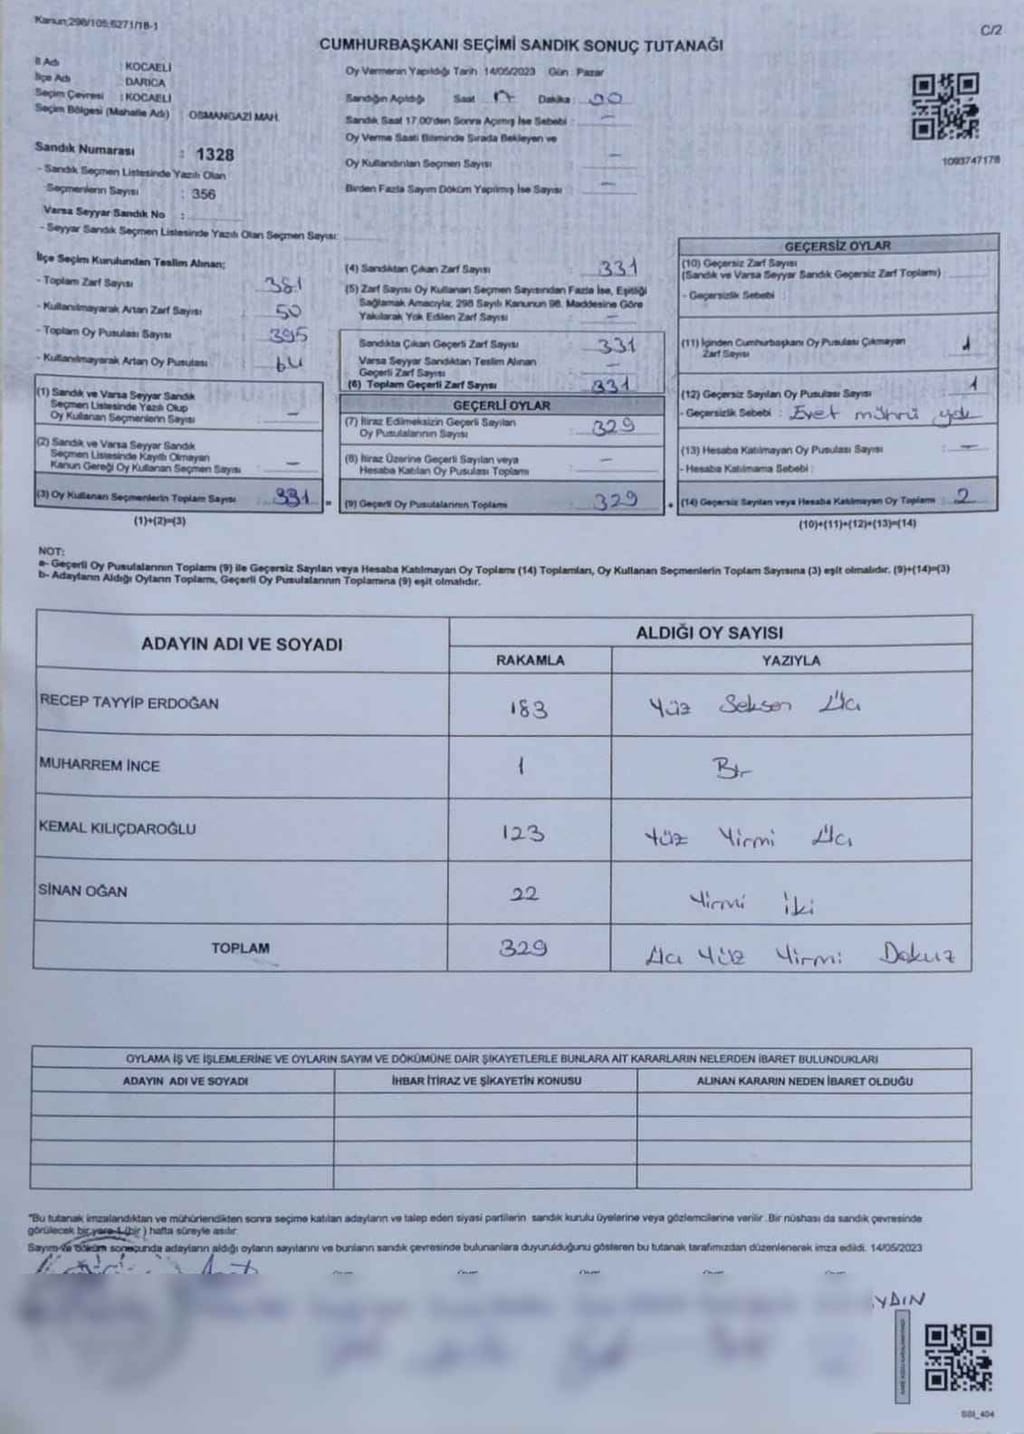 Kanun:298/105;6271/18-1
C/2
CUMHURBAŞKANI SEÇİMİ SANDIK SONUÇ TUTANAĞI
İl Adı : KOCAELİ
İlçe Adı : DARICA
Seçim Çevresi : KOCAELİ
Seçim Bölgesi (Mahalle Adı) OSMANGAZİ MAH.
Sandık Numarası : 1328
- Sandık Seçmen Listesinde Yazılı Olan
Seçmenlerin Sayısı : 356
Varsa Seyyar Sandık No :
- Seyyar Sandık Seçmen Listesinde Yazılı Olan Seçmen Sayısı:
Oy Vermenin Yapıldığı Tarih 14/05/2023 Gün : Pazar
Sandığın Açıldığı Saat 17 Dakika : 00
Sandık Saat 17.00'den Sonra Açılmış İse Sebebi : —
Oy Verme Saati Bitiminde Sırada Bekleyen ve
Oy Kullandırılan Seçmen Sayısı —
Birden Fazla Sayım Döküm Yapılmış İse Sayısı : —
1093747178
İlçe Seçim Kurulundan Teslim Alınan;
- Toplam Zarf Sayısı 381
- Kullanılmayarak Artan Zarf Sayısı : 50
- Toplam Oy Pusulası Sayısı : 395
- Kullanılmayarak Artan Oy Pusulası : 64
(1) Sandık ve Varsa Seyyar Sandık
Seçmen Listesinde Yazılı Olup
Oy Kullanan Seçmenlerin Sayısı : —
(2) Sandık ve Varsa Seyyar Sandık
Seçmen Listesinde Kayıtlı Olmayan
Kanun Gereği Oy Kullanan Seçmen Sayısı : —
(3) Oy Kullanan Seçmenlerin Toplam Sayısı : 331
(1)+(2)=(3)
(4) Sandıktan Çıkan Zarf Sayısı : 331
(5) Zarf Sayısı Oy Kullanan Seçmen Sayısından Fazla İse, Eşitliği
Sağlamak Amacıyla; 298 Sayılı Kanunun 98. Maddesine Göre
Yakılarak Yok Edilen Zarf Sayısı : —
Sandıkta Çıkan Geçerli Zarf Sayısı : 331
Varsa Seyyar Sandıktan Teslim Alınan
Geçerli Zarf Sayısı : —
(6) Toplam Geçerli Zarf Sayısı : 331
GEÇERLİ OYLAR
(7) İtiraz Edilmeksizin Geçerli Sayılan
Oy Pusulalarının Sayısı : 329
(8) İtiraz Üzerine Geçerli Sayılan veya
Hesaba Katılan Oy Pusulası Toplamı : —
= (9) Geçerli Oy Pusulalarının Toplamı : 329
GEÇERSİZ OYLAR
(10) Geçersiz Zarf Sayısı
(Sandık ve Varsa Seyyar Sandık Geçersiz Zarf Toplamı)
- Geçersizlik Sebebi :
(11) İçinden Cumhurbaşkanı Oy Pusulası Çıkmayan
Zarf Sayısı : 1
(12) Geçersiz Sayılan Oy Pusulası Sayısı : 1
- Geçersizlik Sebebi : Evet mührü yok
(13) Hesaba Katılmayan Oy Pusulası Sayısı : —
- Hesaba Katılmama Sebebi :
+ (14) Geçersiz Sayılan veya Hesaba Katılmayan Oy Toplamı : 2
(10)+(11)+(12)+(13)=(14)
NOT:
a- Geçerli Oy Pusulalarının Toplamı (9) ile Geçersiz Sayılan veya Hesaba Katılmayan Oy Toplamı (14) Toplamları, Oy Kullanan Seçmenlerin Toplam Sayısına (3) eşit olmalıdır. (9)+(14)=(3)
b- Adayların Aldığı Oyların Toplamı, Geçerli Oy Pusulalarının Toplamına (9) eşit olmalıdır.
ADAYIN ADI VE SOYADI ALDIĞI OY SAYISI
RAKAMLA YAZIYLA
RECEP TAYYİP ERDOĞAN 183 Yüz Seksen Üç
MUHARREM İNCE 1 Bir
KEMAL KILIÇDAROĞLU 123 Yüz Yirmi Üç
SİNAN OĞAN 22 Yirmi İki
TOPLAM 329 Üç Yüz Yirmi Dokuz
OYLAMA İŞ VE İŞLEMLERİNE VE OYLARIN SAYIM VE DÖKÜMÜNE DAİR ŞİKAYETLERLE BUNLARA AİT KARARLARIN NELERDEN İBARET BULUNDUKLARI
ADAYIN ADI VE SOYADI İHBAR İTİRAZ VE ŞİKAYETİN KONUSU ALINAN KARARIN NEDEN İBARET OLDUĞU
"Bu tutanak imzalandıktan ve mühürlendikten sonra seçime katılan adayların ve talep eden siyasi partilerin sandık kurulu üyelerine veya gözlemcilerine verilir. Bir nüshası da sandık çevresinde
görülecek bir yere 1 (bir) hafta süreyle asılır.
Sayım ve döküm sonucunda adayların aldığı oyların sayılarını ve bunların sandık çevresinde bulunanlara duyurulduğunu gösteren bu tutanak tarafımızdan düzenlenerek imza edildi. 14/05/2023
YDIN
SSI_404